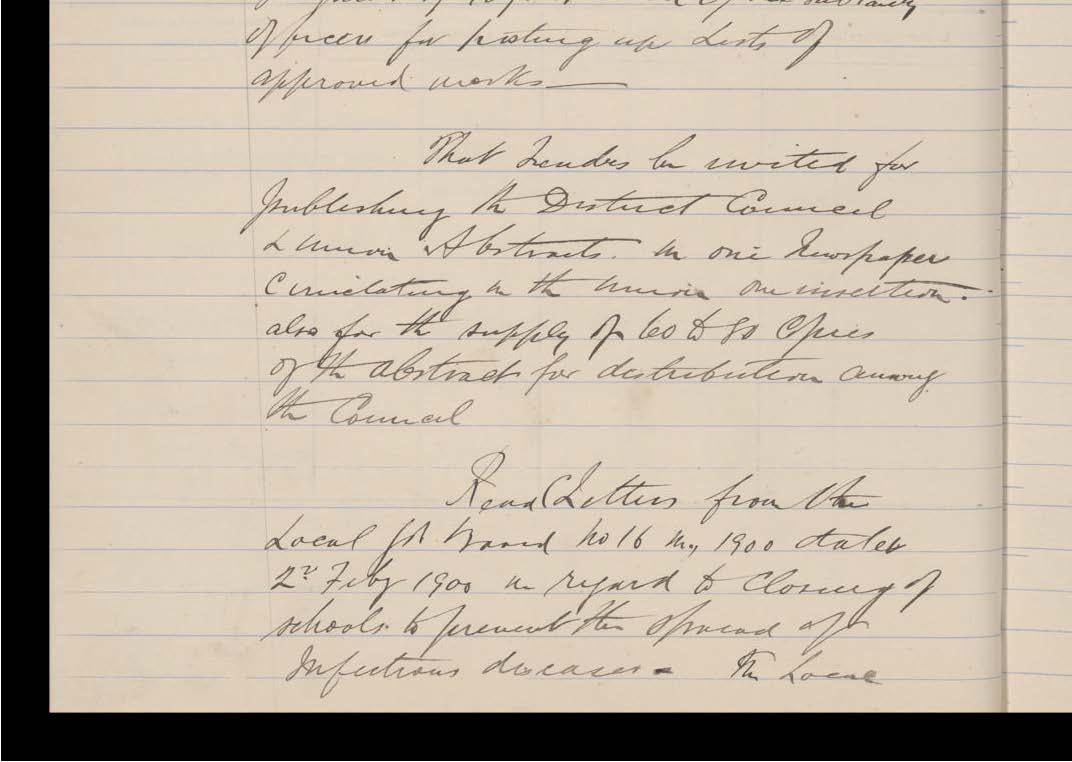 officers for posting up Lists of
approved works —
That Tenders be invited for
publishing the District Council
& Union Abstracts. in one Newspaper
Circulating in the Union one insertion.
also for the supply of 60 to 80 Copies
of the Abstract for distribution among
the Council
Read Letters from the
Local Board No 16 1900 dated
2nd Feby 1900 in regard to Closing of
schools to prevent the spread of
Infectious diseases - The Local